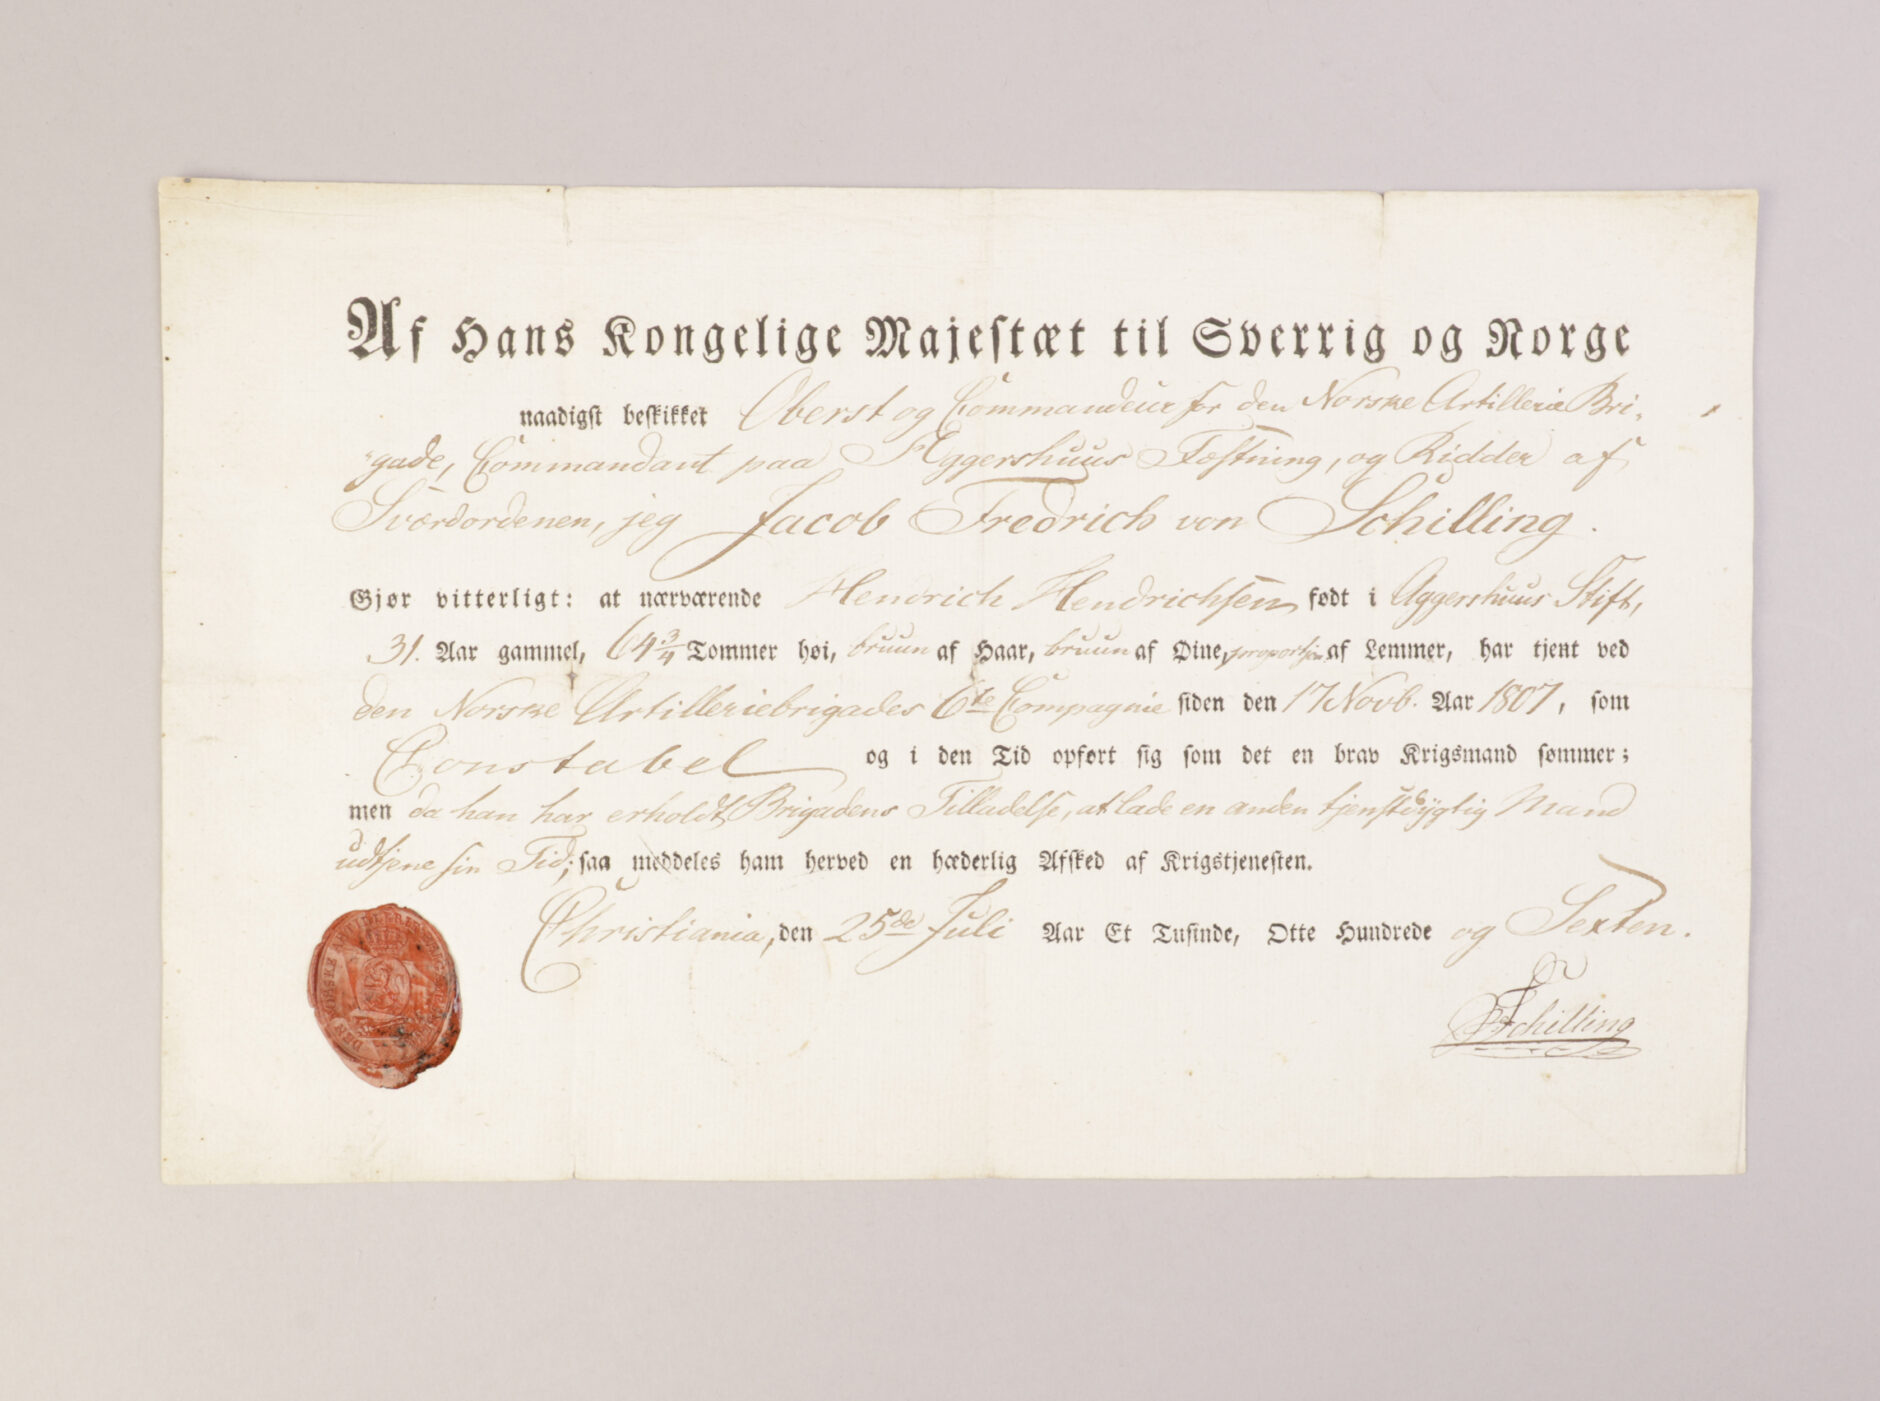 Af Hans Kongelige Majestæt til Sverrig og Norge
naadigst beskikket Oberst og Commandeur for den Norske Artillerie Bri-
gade, Commandant paa Aggershuus Fæstning, og Ridder af
Sværdordenen, jeg Jacob Fredrich von Schilling.
Gjør vitterligt: at nærværende Hendrich Hendrichsen født i Aggershuus Stift,
31. Aar gammel, 64 3/4 Tommer høi, bruun af Haar, bruun af Øine, af Lemmer, har tjent ved
den Norske Artilleriebrigades 6te Compagnie siden den 17 Novb. Aar 1807, som
Constabel og i den Tid opført sig som det en brav Krigsmand sømmer;
men da han har erholdt Brigadens Tilladelse, at lade en anden tjenstdygtig Mand
udtjene sin Tid; saa meddeles ham herved en hæderlig Afsked af Krigstjenesten.
Christiania, den 25de Juli Aar Et Tusinde, Otte Hundrede og Sexten.
Schilling
DEN NORSKE